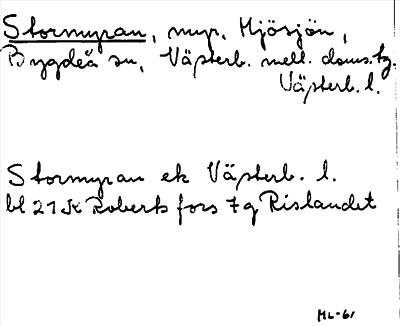 Stormyran, myr, Mjösjön,
Bygdeå sn, Västerb. mell. doms. tg.
Västerb. l.
Stormyran ek Västerb. l.
bl 21 K Robertsfors 7g Rislandet
ML-61